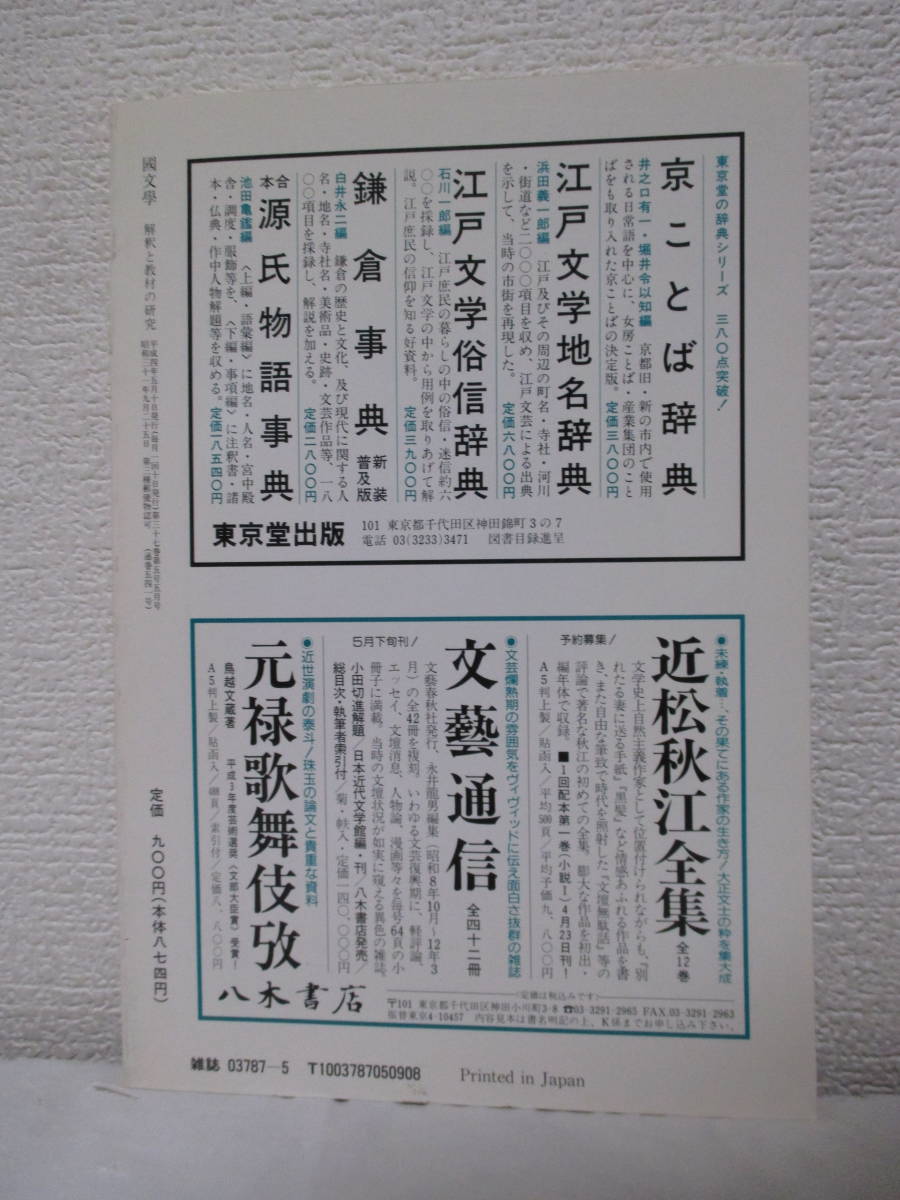 東京堂の辞典シリーズ 三八〇点突破！
京ことば辞典
井之口有一・堀井令以知編 京都旧・新の市内で使用
される日常語を中心に、女房ことば・産業集団のこと
ばをも取り入れた京ことばの決定版。定価三八〇〇円
江戸文学地名辞典
浜田義一郎編 江戸及びその周辺の町名・寺社・河川
・街道など二〇〇〇項目を収め、江戸文芸による出典
を示して、当時の市街を再現した。 定価六八〇〇円
江戸文学俗信辞典
石川一郎編 江戸庶民の暮らしの中の俗信・迷信約六
〇〇を採録し、江戸文学の中から用例を取りあげて解
説。江戸庶民の信仰を知る好資料。 定価三九〇〇円
鎌倉事典 新装普及版
白井永二編 鎌倉の歴史と文化、及び現代に関する人
名・地名・寺社名・美術品・史跡・文芸作品等、一八
〇〇項目を採録し、解説を加える。 定価二八〇〇円
合本 源氏物語事典
池田亀鑑編 〈上編・語彙編〉に地名・人名・宮中殿
舎・調度・服飾等を、〈下編・事項編〉に注釈書・諸
本・仏典・作中人物解題等を収める。定価一八五四〇円
東京堂出版
101 東京都千代田区神田錦町3の7
電話 03(3233)3471 図書目録進呈
●未練・執着…、その果てにある作家の生き方！大正文士の粋を集大成
近松秋江全集 全12巻
予約募集！
文学史上自然主義作家として位置付けられながらも、「別
れたる妻に送る手紙」「黒髪」など情感あふれる作品を書
き、また自由な筆致で時代を照射した『文壇無駄話』等の
評論で著名な秋江の初めての全集。膨大な作品を初出・
編年体で収録。 ■1回配本第一巻（小説Ⅰ）4月23日刊！
A5判上製／貼函入／平均500頁／平均予価九、八〇〇円
●文芸爛熟期の雰囲気をヴィヴィッドに伝え面白さ抜群の雑誌
文藝通信 全四十二冊
5月下旬刊！
文藝春秋社発行、永井龍男編集（昭和8年10月～12年3
月）の全42冊を複刻。いわゆる文芸復興期に、軽評論、
エッセイ、文壇消息、人物論、漫画等々を毎号64頁の小
冊子に満載。当時の文壇状況が如実に窺える異色の雑誌。
小田切進解題／日本近代文学館編・刊／八木書店発売／
総目次・執筆者索引付／菊・帙入・定価一四〇、〇〇〇円
●近世演劇の泰斗！珠玉の論文と貴重な資料
元禄歌舞伎攷
鳥越文蔵著 平成3年度芸術選奨〈文部大臣賞〉受賞！
A5判上製／貼函入／488頁／索引付／定価八、八〇〇円
八木書店
定価は税込みです
〒101 東京都千代田区神田小川町3-8 ☎03-3291-2965 FAX.03-3291-2963
振替東京4-10457 内容見本は書名明記の上、K係までお申し込み下さい。
國文學 解釈と教材の研究
平成四年五月十日発行(毎月一回十日発行)第三十七巻第五号五月号
昭和三十一年九月二十五日 第三種郵便物認可 (通巻五四一号)
定価 九〇〇円(本体八七四円)
雑誌 03787-5 T1003787050908 Printed in Japan